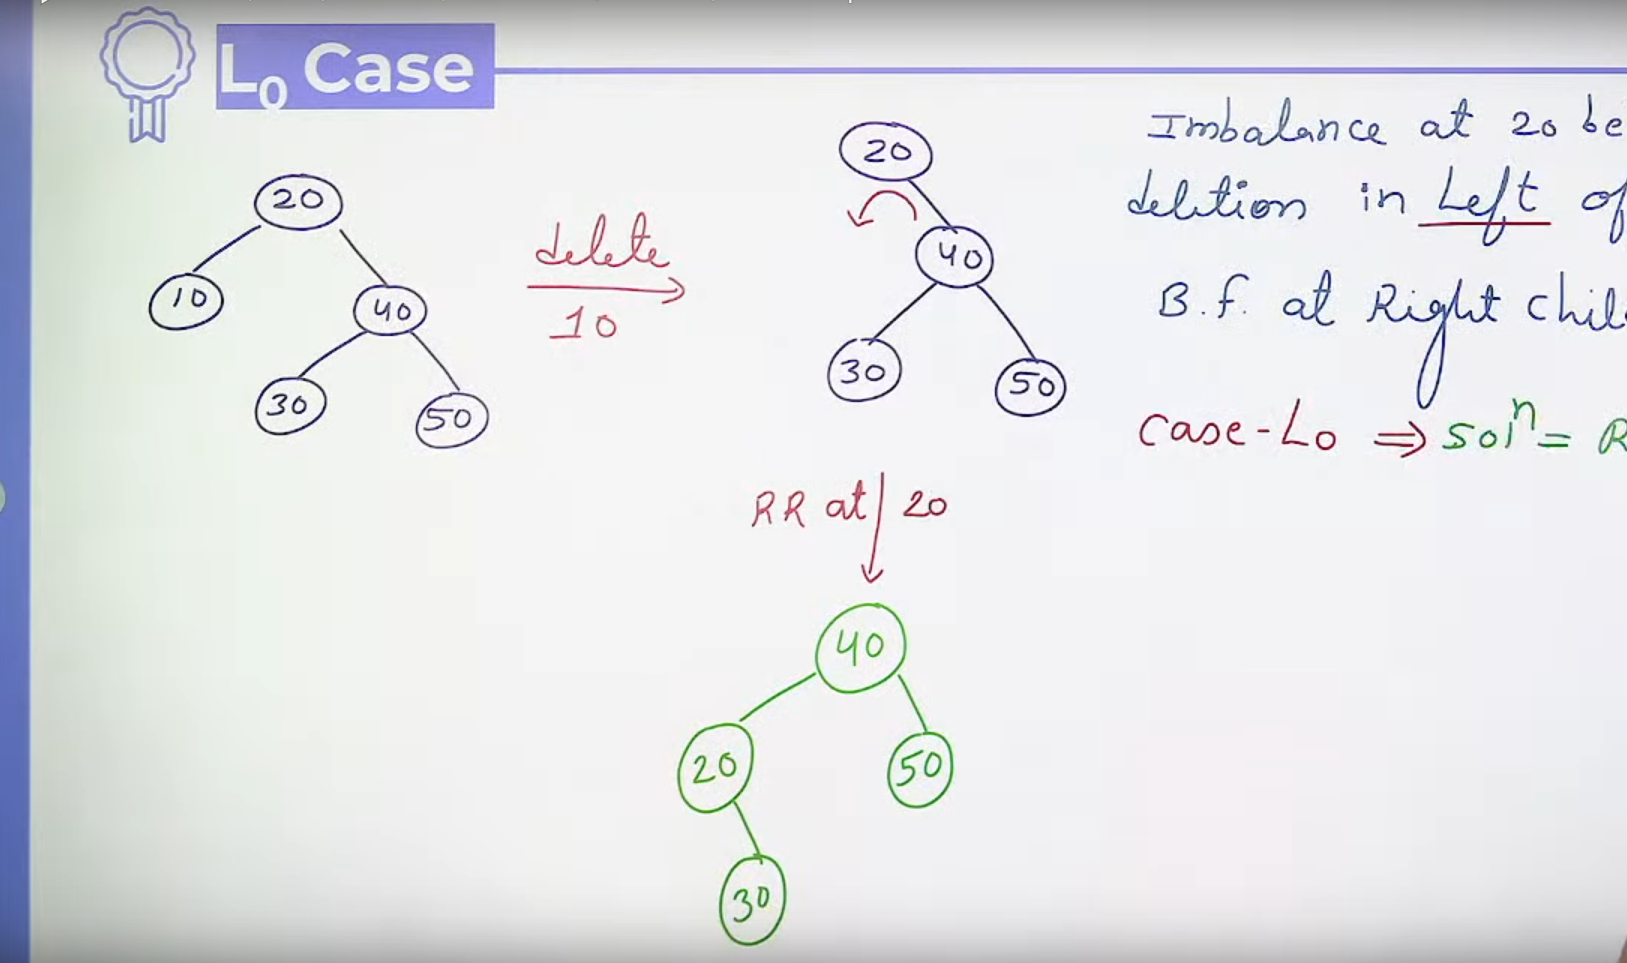 L0 Case
20
10
40
30
50
delete
10
20
40
30
50
Imbalance at 20 be
deletion in Left of
B.f. at Right chil
Case-L0 ⇒ solⁿ = R
RR at 20
40
20
50
30